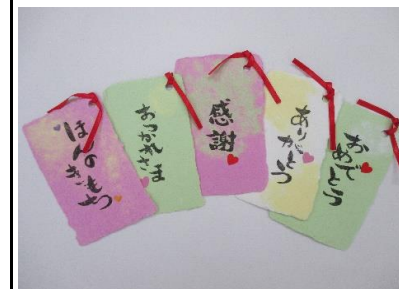 ほんの
きもち
おつかれさま
感謝
ありがとう
おめでとう